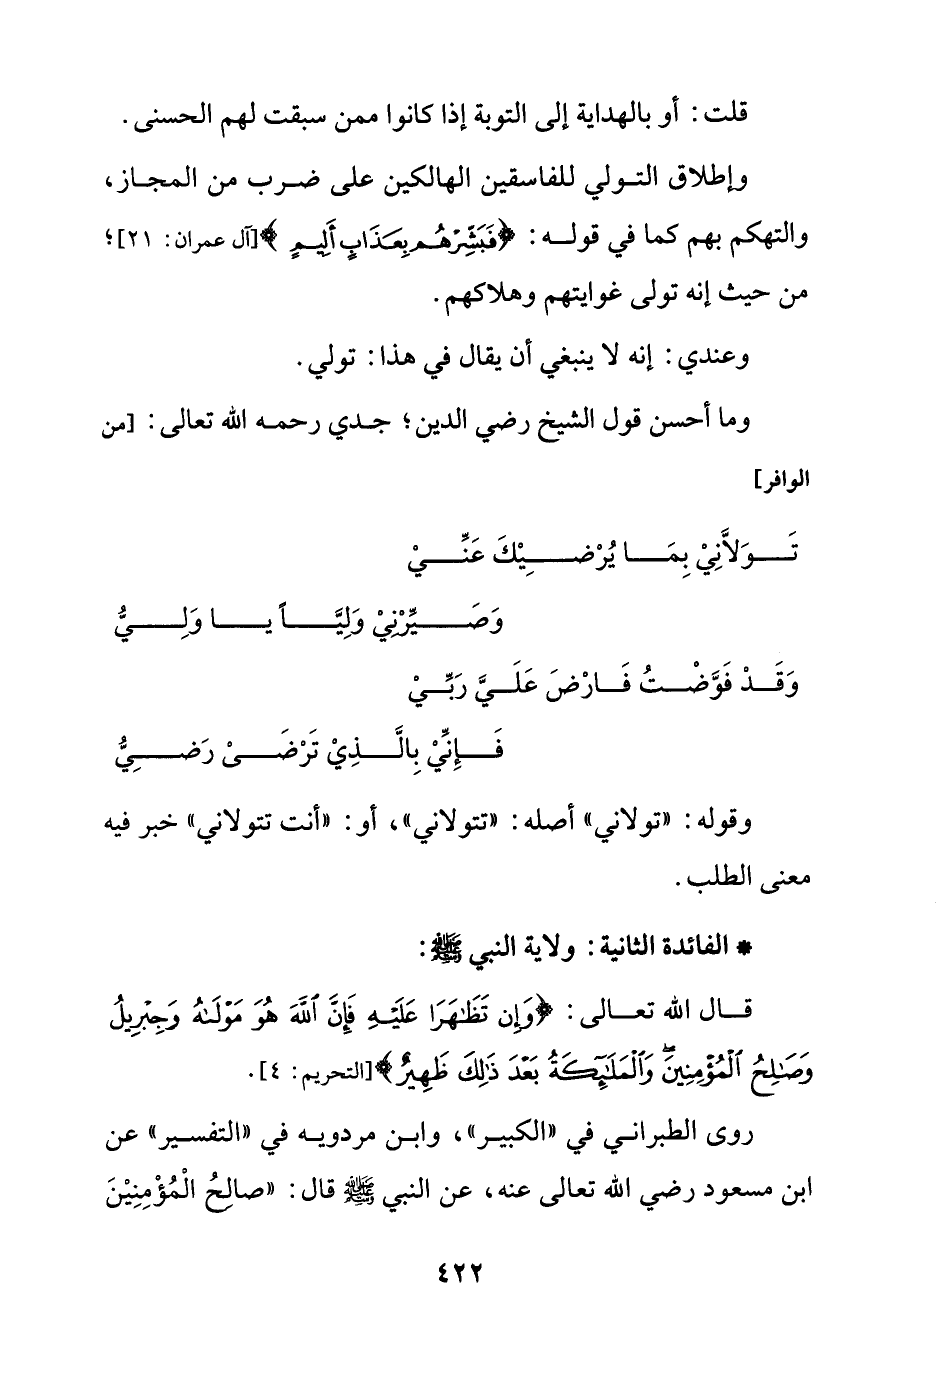 قلت: أو بالهداية إلى التوبة إذا كانوا ممن سبقت لهم الحسنى.
وإطلاق التولي للفاسقين الهالكين على ضرب من المجاز،
والتهكم بهم كما في قوله: ﴿فَبَشِّرْهُم بِعَذَابٍ أَلِيمٍ﴾[آل عمران: ٢١]؛
من حيث إنه تولى غوايتهم وهلاكهم.
وعندي: إنه لا ينبغي أن يقال في هذا: تولي.
وما أحسن قول الشيخ رضي الدين؛ جدي رحمه الله تعالى: [من
الوافر]
تَوَلاَّنِيْ بِمَا يُرْضِيْكَ عَنِّيْ
وَصَيِّرْنِيْ وَلِيَّاً يا وَلِيُّ
وَقَدْ فَوَّضْتُ فَارْضَ عَلَيَّ رَبِّيْ
فَإِنِّيْ بِالَّذِيْ تَرْضَىْ رَضِيُّ
وقوله: «تولاني» أصله: «تتولاني»، أو: «أنت تتولاني» خبر فيه
معنى الطلب.
* الفائدة الثانية: ولاية النبي ﷺ:
قال الله تعالى: ﴿وَإِن تَظَٰهَرَا عَلَيْهِ فَإِنَّ ٱللَّهَ هُوَ مَوْلَىٰهُ وَجِبْرِيلُ
وَصَٰلِحُ ٱلْمُؤْمِنِينَۖ وَٱلْمَلَٰٓئِكَةُ بَعْدَ ذَٰلِكَ ظَهِيرٌ﴾[التحريم: ٤].
روى الطبراني في «الكبير»، وابن مردويه في «التفسير» عن
ابن مسعود رضي الله تعالى عنه، عن النبي ﷺ قال: «صالِحُ الْمُؤْمِنِيْنَ
٤٢٢